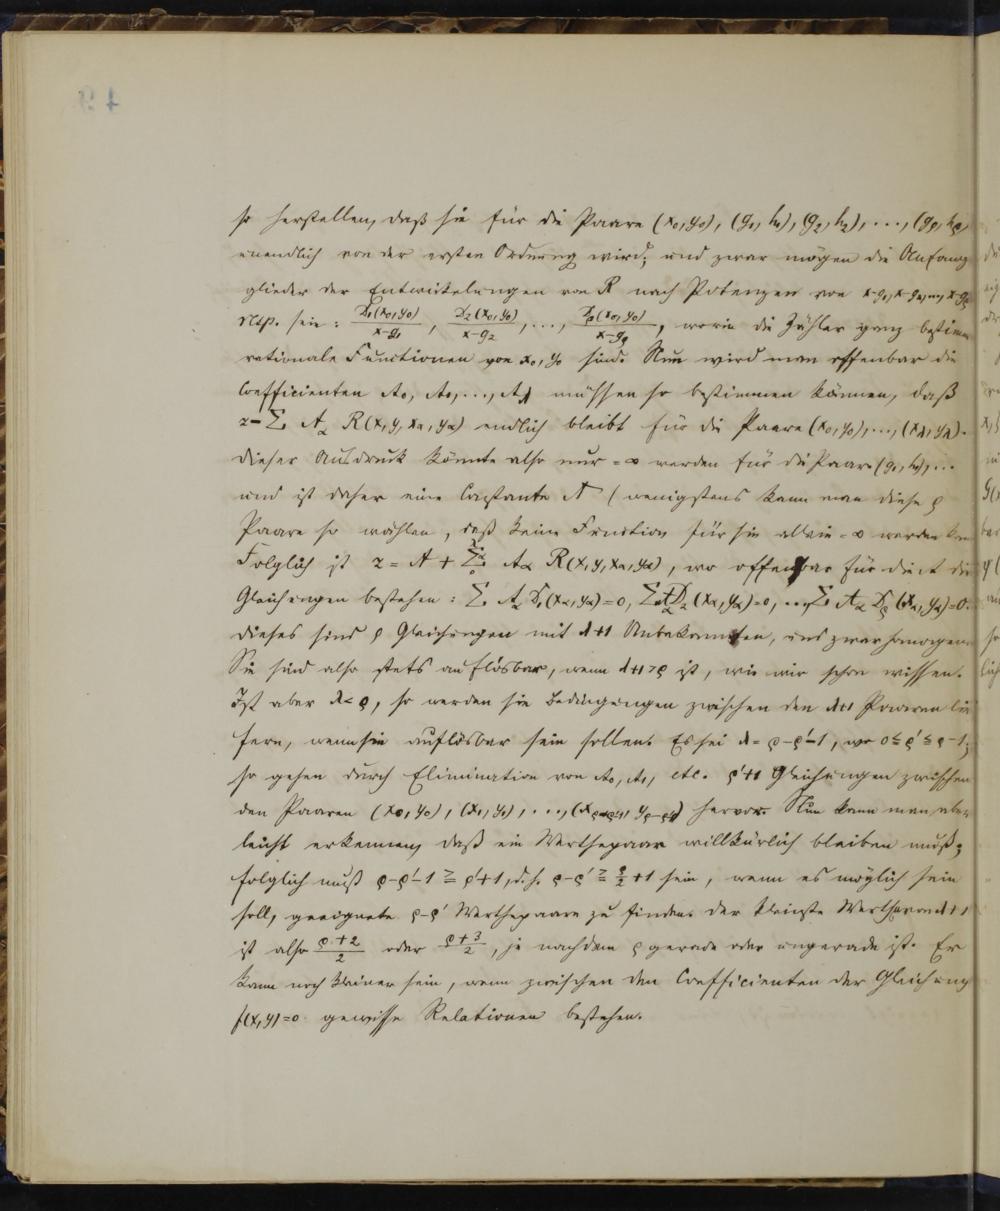 so herstellen, daß sie für die Paare (x₀,y₀), (g₁,h₁), (g₂,h₂), ..., (gρ,hρ)
unendlich von der ersten Ordnung wird; und zwar mögen die Anfangs
glieder der Entwickelungen von R nach Potenzen von x-g₁, x-g₂, ..., x-gρ
resp. sein: D₁(x₀,y₀)/(x-g₁), D₂(x₀,y₀)/(x-g₂), ..., Dρ(x₀,y₀)/(x-gρ), worin die Zähler ganz bestimm
rationale Functionen von x₀,y₀ sind. Nun wird man offenbar die
Coefficienten A₀, A₁, ..., Aλ müssen so bestimmen können, daß
z-Σ Aα R(x,y,xα,yα) endlich bleibt für die Paare (x₀,y₀), ..., (xλ,yλ).
Dieser Ausdruck könnte also nur =∞ werden für die Paare (g₁,h₁), ...
und ist daher eine Constante A (wenigstens kann man diese ρ
Paare so wählen, daß keine Function für sie allein =∞ werden kan
Folglich ist z = A + Σ Aα R(x,y,xα,yα), wo offenbar für die A die
Gleichungen bestehen: Σ Aα D₁(xα,yα)=0, Σ Aα D₂(xα,yα)=0, ..., Σ Aα Dρ(xα,yα)=0.
Dieses sind ρ Gleichungen mit λ+1 Unbekannten, und zwar homogen
Sie sind also stets auflösbar, wenn λ+1>ρ ist, wie wir schon wissen.
Ist aber λ<ρ, so werden sie Bedingungen zwischen den λ+1 Paaren lie
fern, wenn sie auflösbar sein sollen. Es sei λ=ρ-ρ'-1, wo 0≤ρ'≤ρ-1;
so gehen durch Elimination von A₀, A₁, etc. ρ'+1 Gleichungen zwischen
den Paaren (x₀,y₀), (x₁,y₁), ..., (xρ-ρ'-1, yρ-ρ'-1) hervor. Nun kann man aber
leicht erkennen, daß ein Werthepaar willkürlich bleiben muß;
folglich muß ρ-ρ'-1 ≧ ρ'+1, d.h. ρ-ρ' ≧ ρ/2+1 sein, wenn es möglich sein
soll, geeignete ρ-ρ' Werthepaare zu finden. Der kleinste Werth von λ+1
ist also (ρ+2)/2 oder (ρ+3)/2, je nachdem ρ gerade oder ungerade ist. Er
kann noch kleiner sein, wenn zwischen den Coefficienten der Gleichung
f(x,y)=0 gewisse Relationen bestehen.